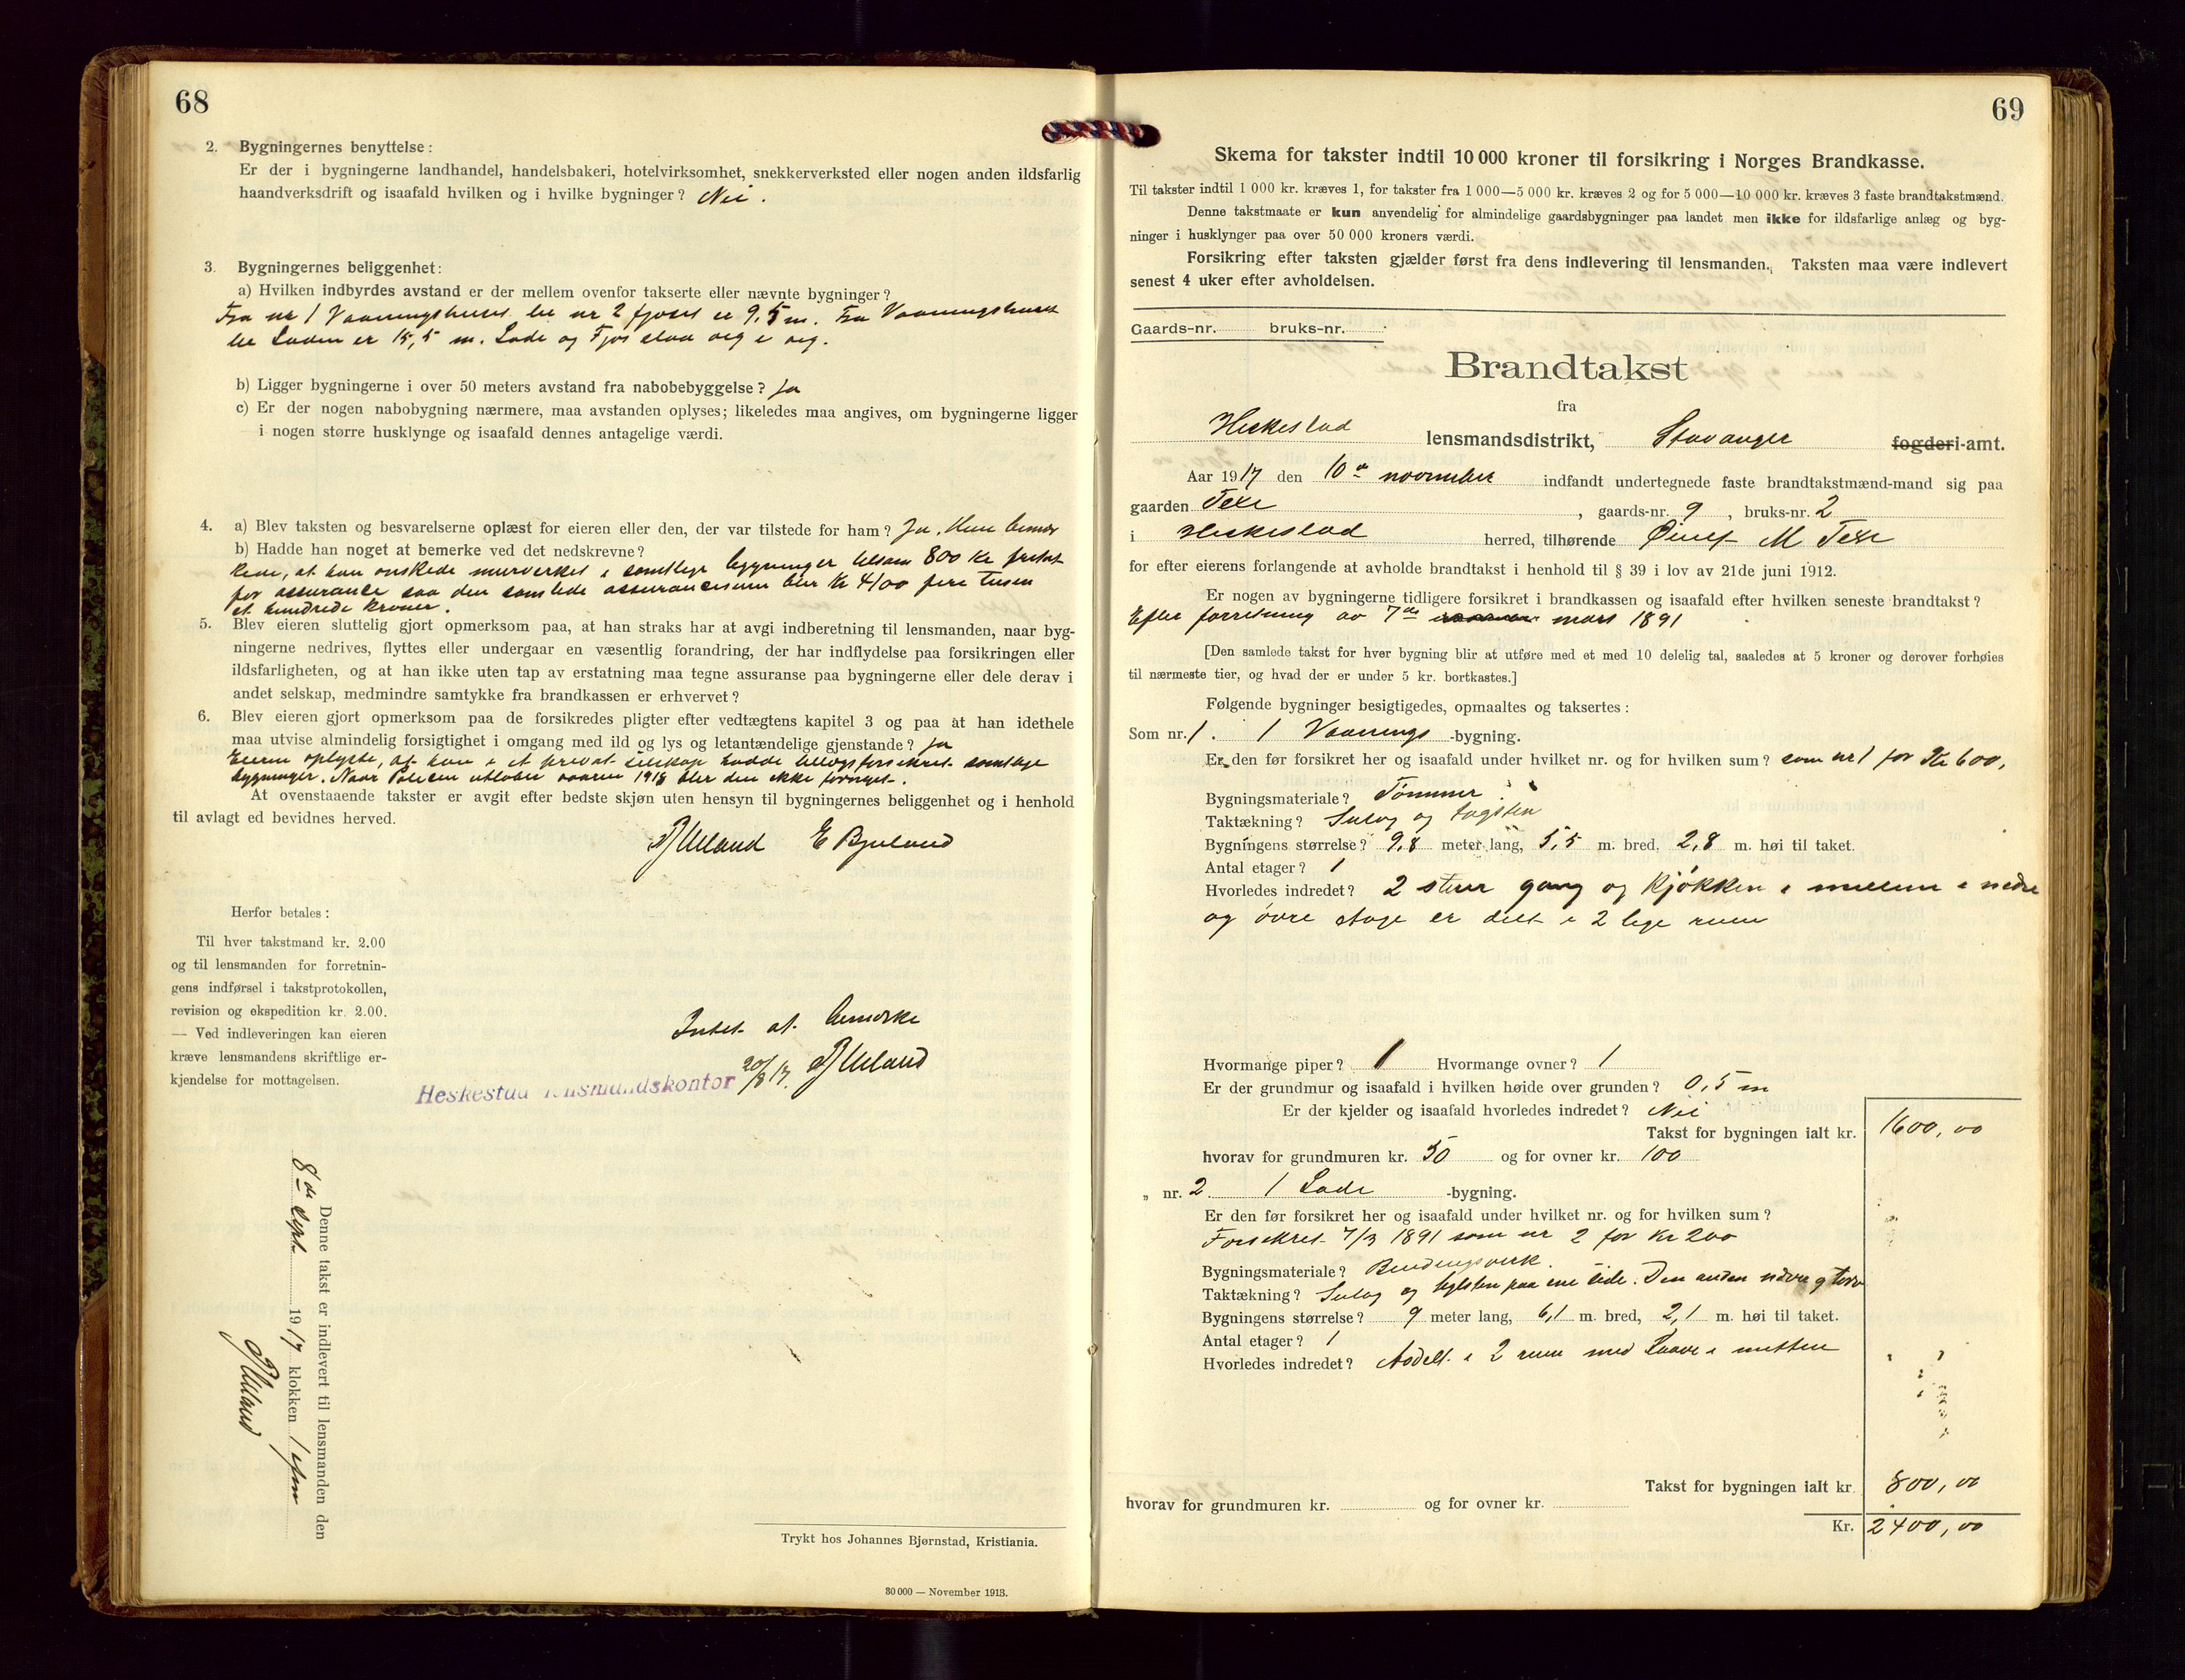 68
2. Bygningernes benyttelse:
Er der i bygningerne landhandel, handelsbakeri, hotelvirksomhet, snekkerverksted eller nogen anden ildsfarlig
haandverksdrift og isaafald hvilken og i hvilke bygninger? Nei.
3. Bygningernes beliggenhet:
a) Hvilken indbyrdes avstand er der mellem ovenfor takserte eller nævnte bygninger?
Fra nr 1 Vaaningshuset til nr 2 fjøset er 9,5 m. Fra Vaaningshuset
til Laden er 15,5 m. Lade og Fjøs slaa sig i sig.
b) Ligger bygningerne i over 50 meters avstand fra nabobebyggelse? Ja
c) Er der nogen nabobygning nærmere, maa avstanden oplyses; likeledes maa angives, om bygningerne ligger
i nogen større husklynge og isaafald dennes antagelige værdi.
4. a) Blev taksten og besvarelserne oplæst for eieren eller den, der var tilstede for ham? Ja. Hun bemær
b) Hadde han noget at bemerke ved det nedskrevne?
kede, at han ønskede murverket i samtlige bygninger tilsam 800 Kr fritat
for assurance saa den samlede assurancesum blir Kr 4100 fire tusen
et hundrede kroner.
5. Blev eieren sluttelig gjort opmerksom paa, at han straks har at avgi indberetning til lensmanden, naar byg-
ningerne nedrives, flyttes eller undergaar en væsentlig forandring, der har indflydelse paa forsikringen eller
ildsfarligheten, og at han ikke uten tap av erstatning maa tegne assuranse paa bygningerne eller dele derav i
andet selskap, medmindre samtykke fra brandkassen er erhvervet?
6. Blev eieren gjort opmerksom paa de forsikredes pligter efter vedtægtens kapitel 3 og paa at han idethele
maa utvise almindelig forsigtighet i omgang med ild og lys og letantændelige gjenstande? Ja
Eieren oplyste, at han i et privat selskap hadde tillægsforsikret samtlige
bygninger. Naar Policen utløber vaaren 1918 blir den ikke fornyet.
At ovenstaaende takster er avgit efter bedste skjøn uten hensyn til bygningernes beliggenhet og i henhold
til avlagt ed bevidnes herved.
Ueland E Bjuland
Herfor betales:
Til hver takstmand kr. 2.00
og til lensmanden for forretnin-
gens indførsel i takstprotokollen,
revision og ekspedition kr. 2.00.
— Ved indleveringen kan eieren
kræve lensmandens skriftlige er-
kjendelse for mottagelsen.
Intet at bemerke
Heskestad lensmandskontor 20/8 17. Ueland
Denne takst er indlevert til lensmanden den
8de Sept. 1917 klokken 1 efm
Ueland
Trykt hos Johannes Bjørnstad, Kristiania.
30 000 — November 1913.
69
Skema for takster indtil 10 000 kroner til forsikring i Norges Brandkasse.
Til takster indtil 1 000 kr. kræves 1, for takster fra 1 000—5 000 kr. kræves 2 og for 5 000—10 000 kr. kræves 3 faste brandtakstmænd.
Denne takstmaate er kun anvendelig for almindelige gaardsbygninger paa landet men ikke for ildsfarlige anlæg og byg-
ninger i husklynger paa over 50 000 kroners værdi.
Forsikring efter taksten gjælder først fra dens indlevering til lensmanden. Taksten maa være indlevert
senest 4 uker efter avholdelsen.
Gaards-nr. bruks-nr.
Brandtakst
fra
Heskestad lensmandsdistrikt, Stavanger fogderi-amt.
Aar 1917 den 10de november indfandt undertegnede faste brandtakstmænd-mand sig paa
gaarden Texe, gaards-nr. 9, bruks-nr. 2
i Heskestad herred, tilhørende M Texe
for efter eierens forlangende at avholde brandtakst i henhold til § 39 i lov av 21de juni 1912.
Er nogen av bygningerne tidligere forsikret i brandkassen og isaafald efter hvilken seneste brandtakst?
Efter forretning av 7de mars 1891
[Den samlede takst for hver bygning blir at utføre med et med 10 delelig tal, saaledes at 5 kroner og derover forhøies
til nærmeste tier, og hvad der er under 5 kr. bortkastes.]
Følgende bygninger besigtigedes, opmaaltes og taksertes:
Som nr. 1. 1 Vaanings-bygning.
Er den før forsikret her og isaafald under hvilket nr. og for hvilken sum? som nr 1 for Kr 600,
Bygningsmateriale? Tømmer.
Taktækning? Sutag og tagsten
Bygningens størrelse? 9,8 meter lang, 5,5 m. bred, 2,8 m. høi til taket.
Antal etager? 1
Hvorledes indredet? 2 stuer gang og Kjøkken i mitten i nedre
og øvre etage er delt i 2 lige rum
Hvormange piper? 1 Hvormange ovner? 1
Er der grundmur og isaafald i hvilken høide over grunden? 0,5 m
Er der kjelder og isaafald hvorledes indredet? Nei
Takst for bygningen ialt kr. 1600,00
hvorav for grundmuren kr. 50 og for ovner kr. 100
„ nr. 2. 1 Lade-bygning.
Er den før forsikret her og isaafald under hvilket nr. og for hvilken sum?
Forsikret 7/3 1891 som nr 2 for Kr 200
Bygningsmateriale? Bindingsverk.
Taktækning? Sutag og teglsten paa ene side. Den anden næver og torv
Bygningens størrelse? 9 meter lang, 6,1 m. bred, 2,1 m. høi til taket.
Antal etager? 1
Hvorledes indredet? Avdelt i 2 rum med Laave i mitten
Takst for bygningen ialt kr 800,00
hvorav for grundmuren kr. og for ovner kr.
Kr. 2400,00